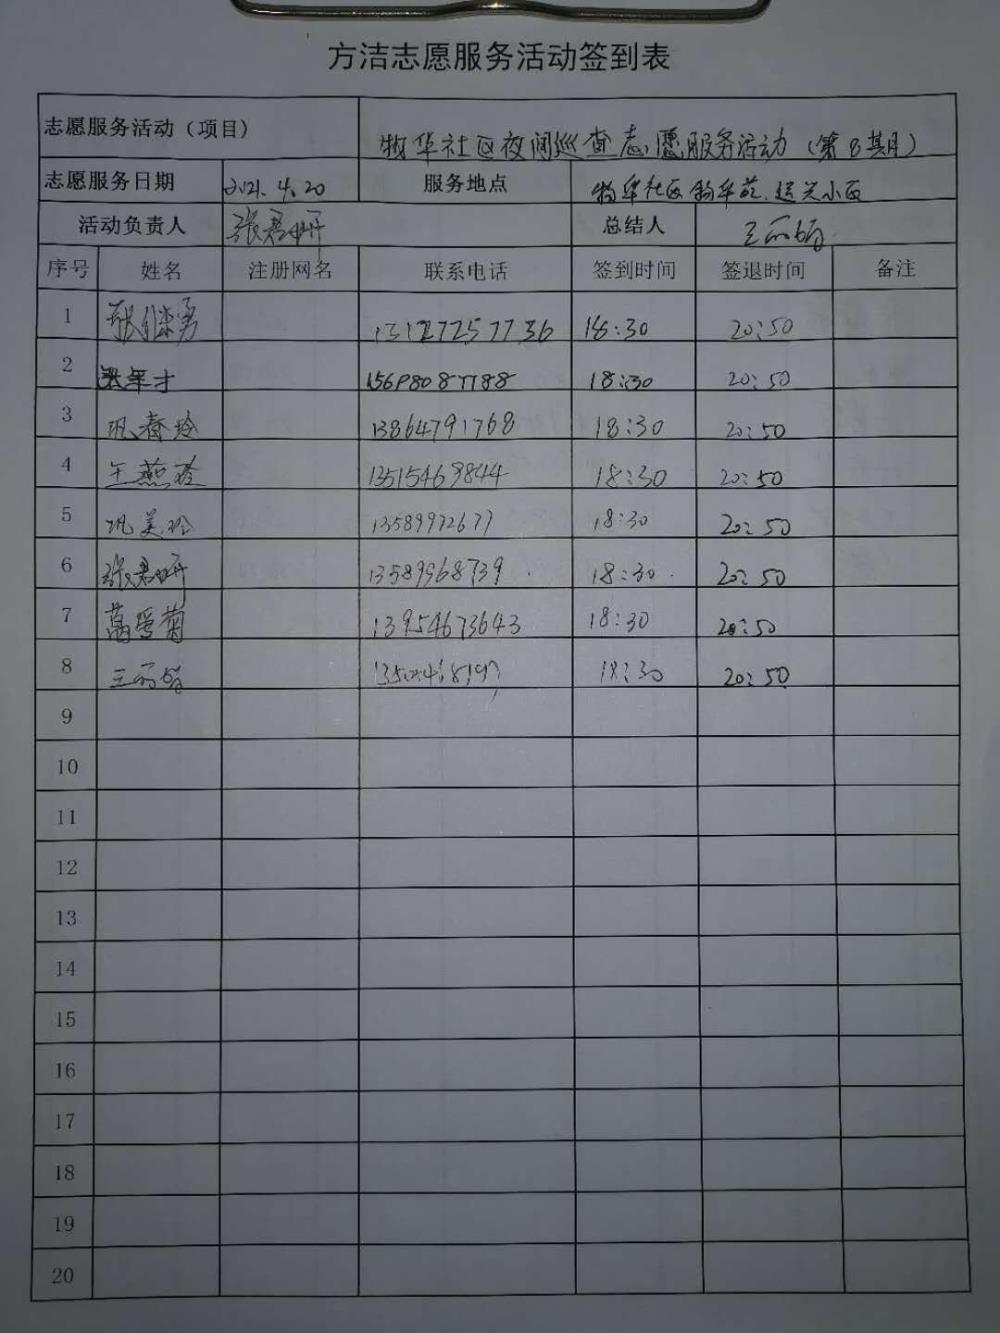 方洁志愿服务活动签到表
志愿服务活动（项目） 牧华社区夜间巡查志愿服务活动（第8期）
志愿服务日期 2021.4.20 服务地点
活动负责人 张君妍 总结人 王丽娟
序号 姓名 注册网名 联系电话 签到时间 签退时间 备注
1 张继勇 18:30 20:50
2 18:30 20:50
3 巩春玲 13864791768 18:30 20:50
4 王燕玲 13515469844 18:30 20:50
5 巩美玲 1358997267 18:30 20:50
6 张君妍 13589968739 18:30 20:50
7 葛爱菊 13954673643 18:30 20:50
8 18:30 20:50
9
10
11
12
13
14
15
16
17
18
19
20